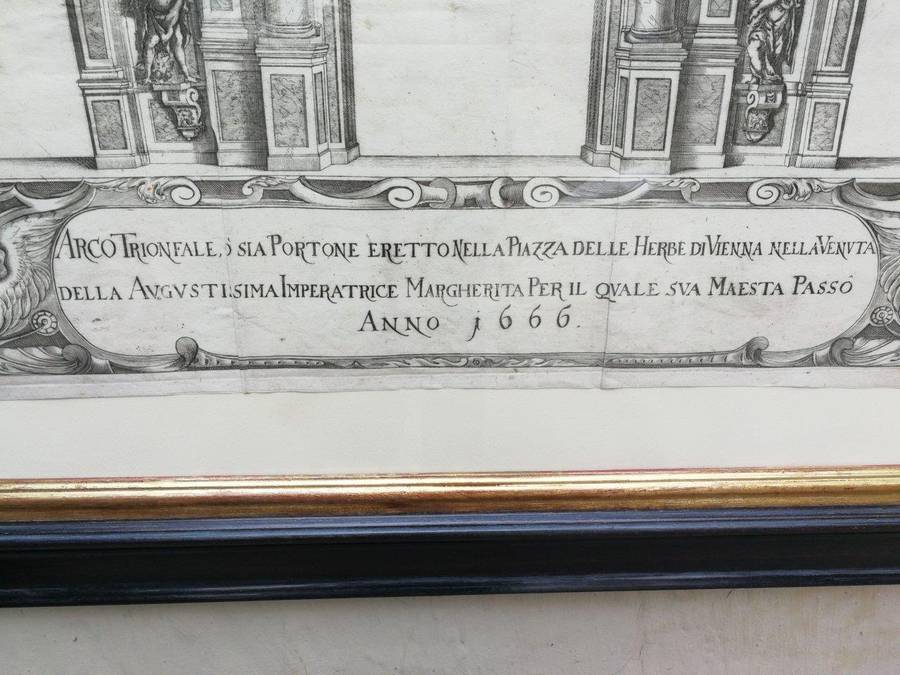 ARCO TRIONFALE, ò SIA PORTONE ERETTO NELLA PIAZZA DELLE HERBE DI VIENNA NELLA VENVTA
DELLA AVGVSTISSIMA IMPERATRICE MARGHERITA PER IL QVALE SVA MAESTA PASSÒ
ANNO 1666.